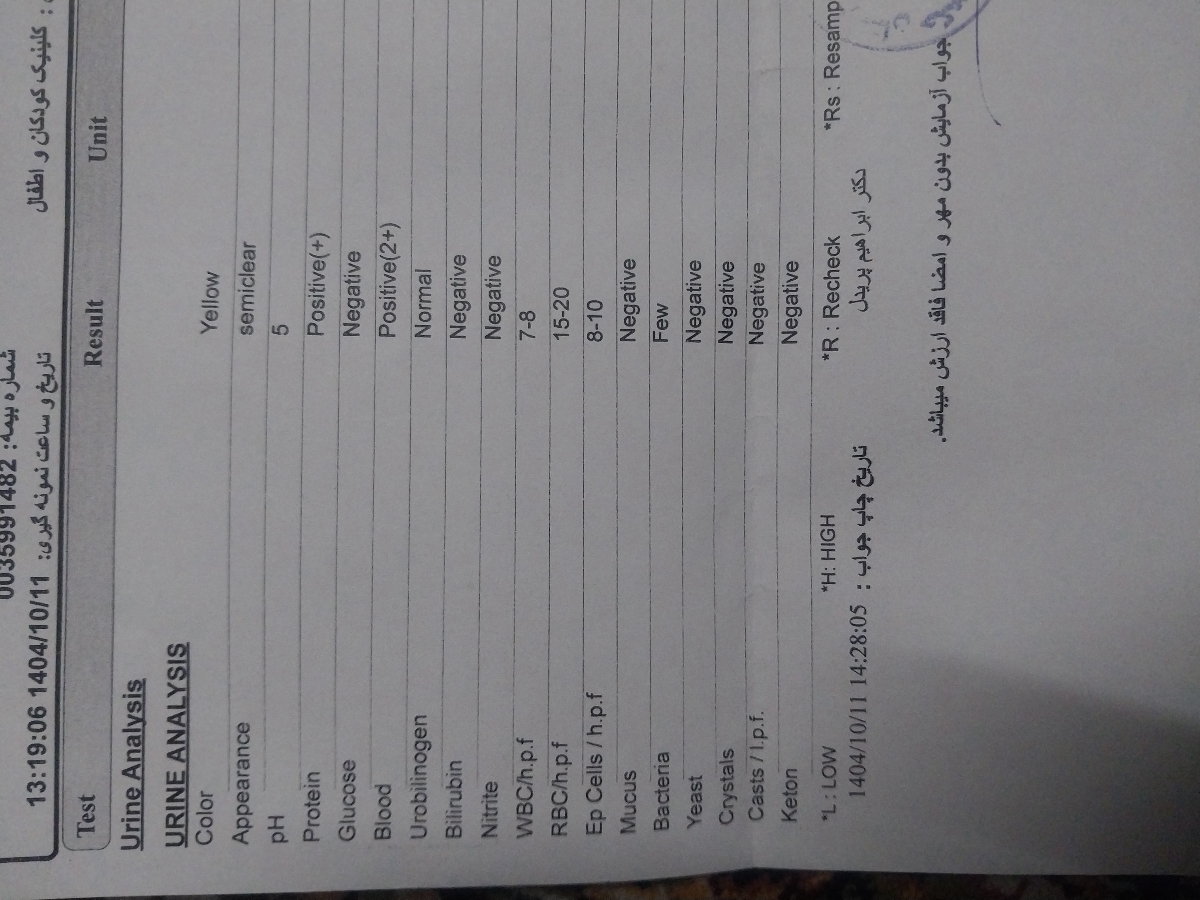 شماره بیمه: 0035991482
تاریخ و ساعت نمونه گیری: 1404/10/11 13:19:06 : کلینیک کودکان و اطفال
Test Result Unit
Urine Analysis
URINE ANALYSIS
Color Yellow
Appearance semiclear
pH 5
Protein Positive(+)
Glucose Negative
Blood Positive(2+)
Urobilinogen Normal
Bilirubin Negative
Nitrite Negative
WBC/h.p.f 7-8
RBC/h.p.f 15-20
Ep Cells / h.p.f 8-10
Mucus Negative
Bacteria Few
Yeast Negative
Crystals Negative
Casts / l.p.f. Negative
Keton Negative
*L : LOW *H: HIGH *R : Recheck *Rs : Resamp
دکتر ابراهیم پریدل تاریخ چاپ جواب : 1404/10/11 14:28:05
جواب آزمایش بدون مهر و امضا فاقد ارزش میباشد.